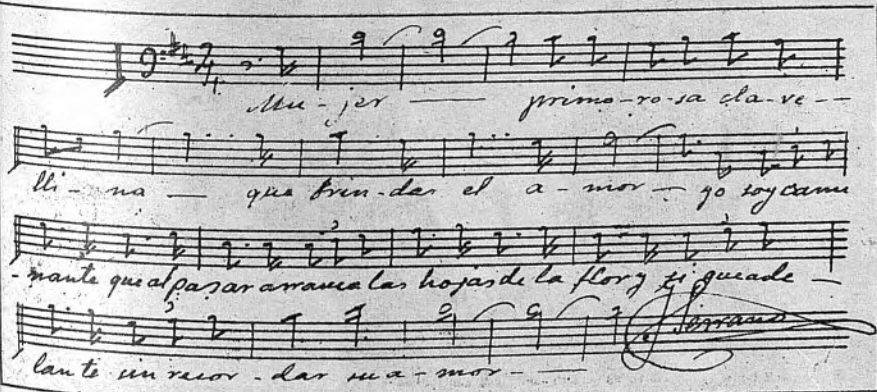 Mu - jer — primo-ro-sa cla-ve --
lli - na — que brin-das el a - mor — yo soy cami
-nante que al pasar arranca las hojas de la flor y si gue ade —
lan te sin recor - dar su a - mor - —
Serrano